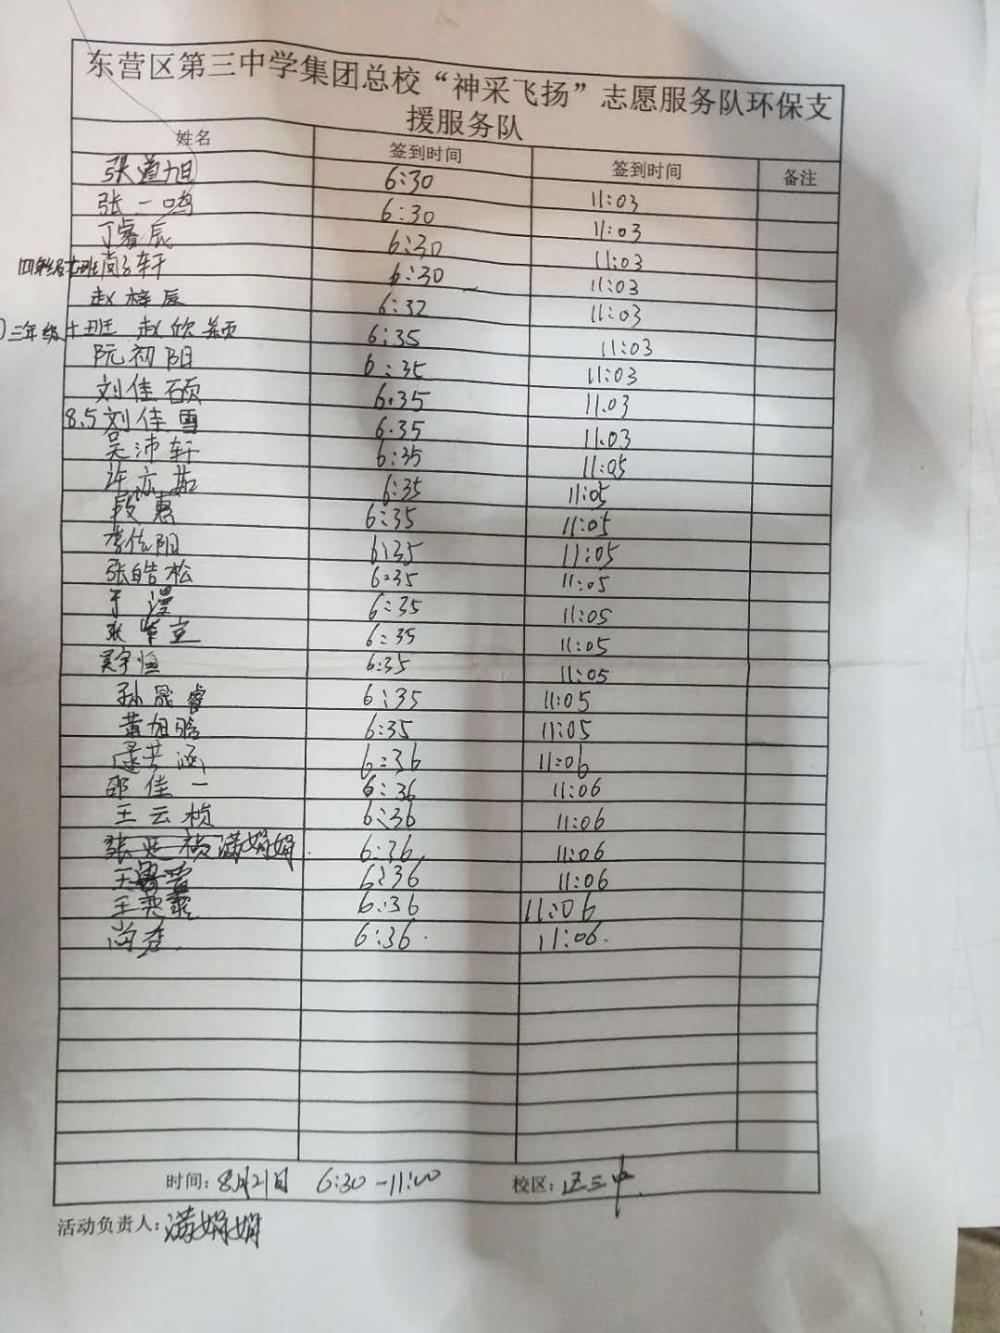 东营区第三中学集团总校“神采飞扬”志愿服务队环保支
援服务队
姓名 签到时间 签到时间 备注
张道旭 6:30 11:03
张一鸣 6:30 11:03
丁睿辰 6:30 11:03
轩 6:30 11:03
赵梓辰 6:32 11:03
三年级十班 赵欣颖 6:35 11:03
阮初阳 6:35 11:03
刘佳硕 6.35 11.03
8.5 刘佳雪 6.35 11.03
吴沛轩 6:35 11:05
许亦茹 6:35 11:05
段惠 6:35 11:05
李依阳 6:35 11:05
张皓松 6:35 11:05
于漫 6:35 11:05
张 6:35 11:05
吴宇恒 6:35 11:05
孙晟睿 6:35 11:05
黄旭晗 6:35 11:05
涵 6:36 11:06
邵佳一 6:36 11:06
王云桢 6:36 11:06
满娟娟 6:36 11:06
王 6:36 11:06
王 6:36 11:06
尚 6:36 11:06
时间:8月21日 6:30-11:00 校区:区三中
活动负责人:满娟娟